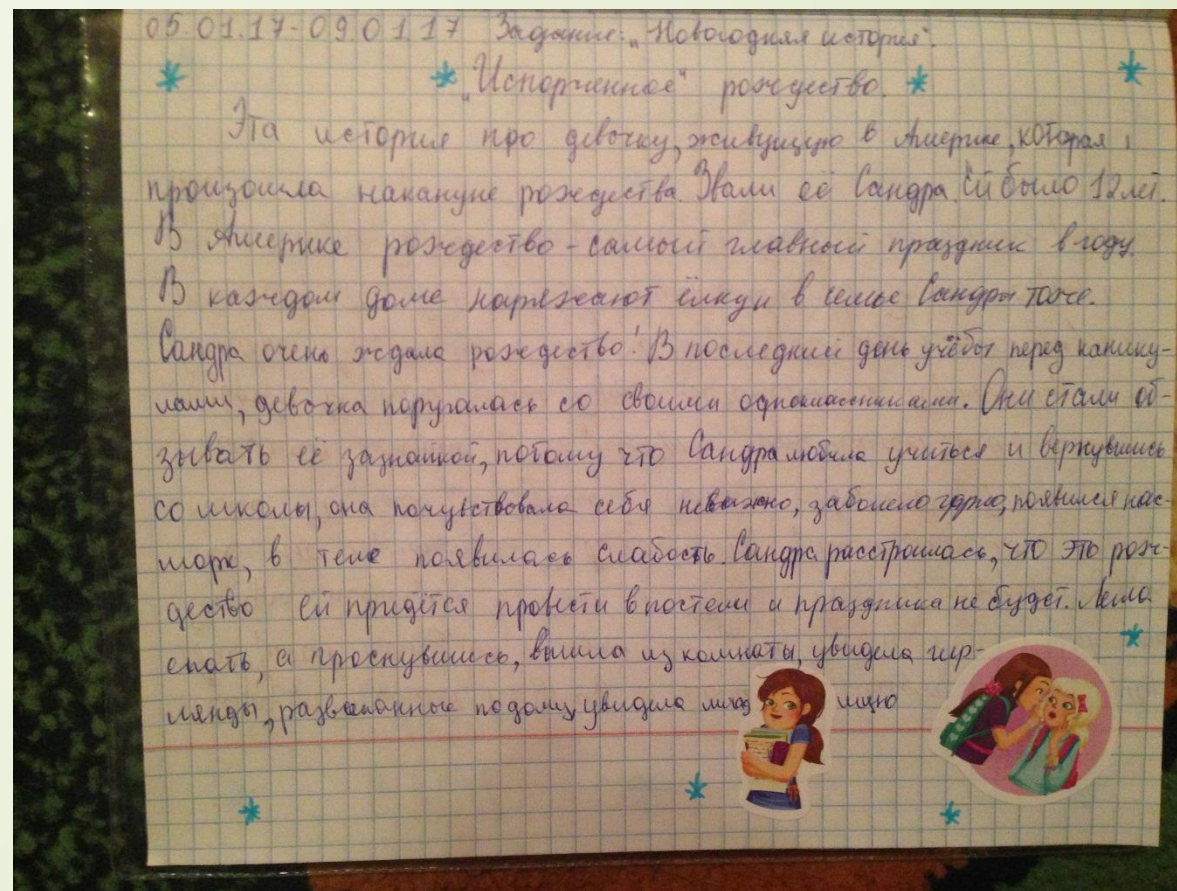 05.01.17-09.01.17 Задание: „Новогодняя история".
„Испорченное" рождество.
Эта история про девочку, живущую в Америке, которая
произошла накануне рождества. Звали её Сандра. Ей было 12 лет.
В Америке рождество - самый главный праздник в году.
В каждом доме наряжают ёлку и в семье Сандры тоже.
Сандра очень ждала рождество! В последний день учёбы перед канику-
лами, девочка поругалась со своими одноклассниками. Они стали об-
зывать её зазнайкой, потому что Сандра любила учиться и вернувшись
со школы, она почувствовала себя неважно, заболело горло, появился нас-
морк, в теле появилась слабость. Сандра расстроилась, что это рож-
дество ей придётся провести в постели и праздника не будет. Легла
спать, а проснувшись, вышла из комнаты, увидела гир-
лянды, развешанные по дому, увидела млад шую